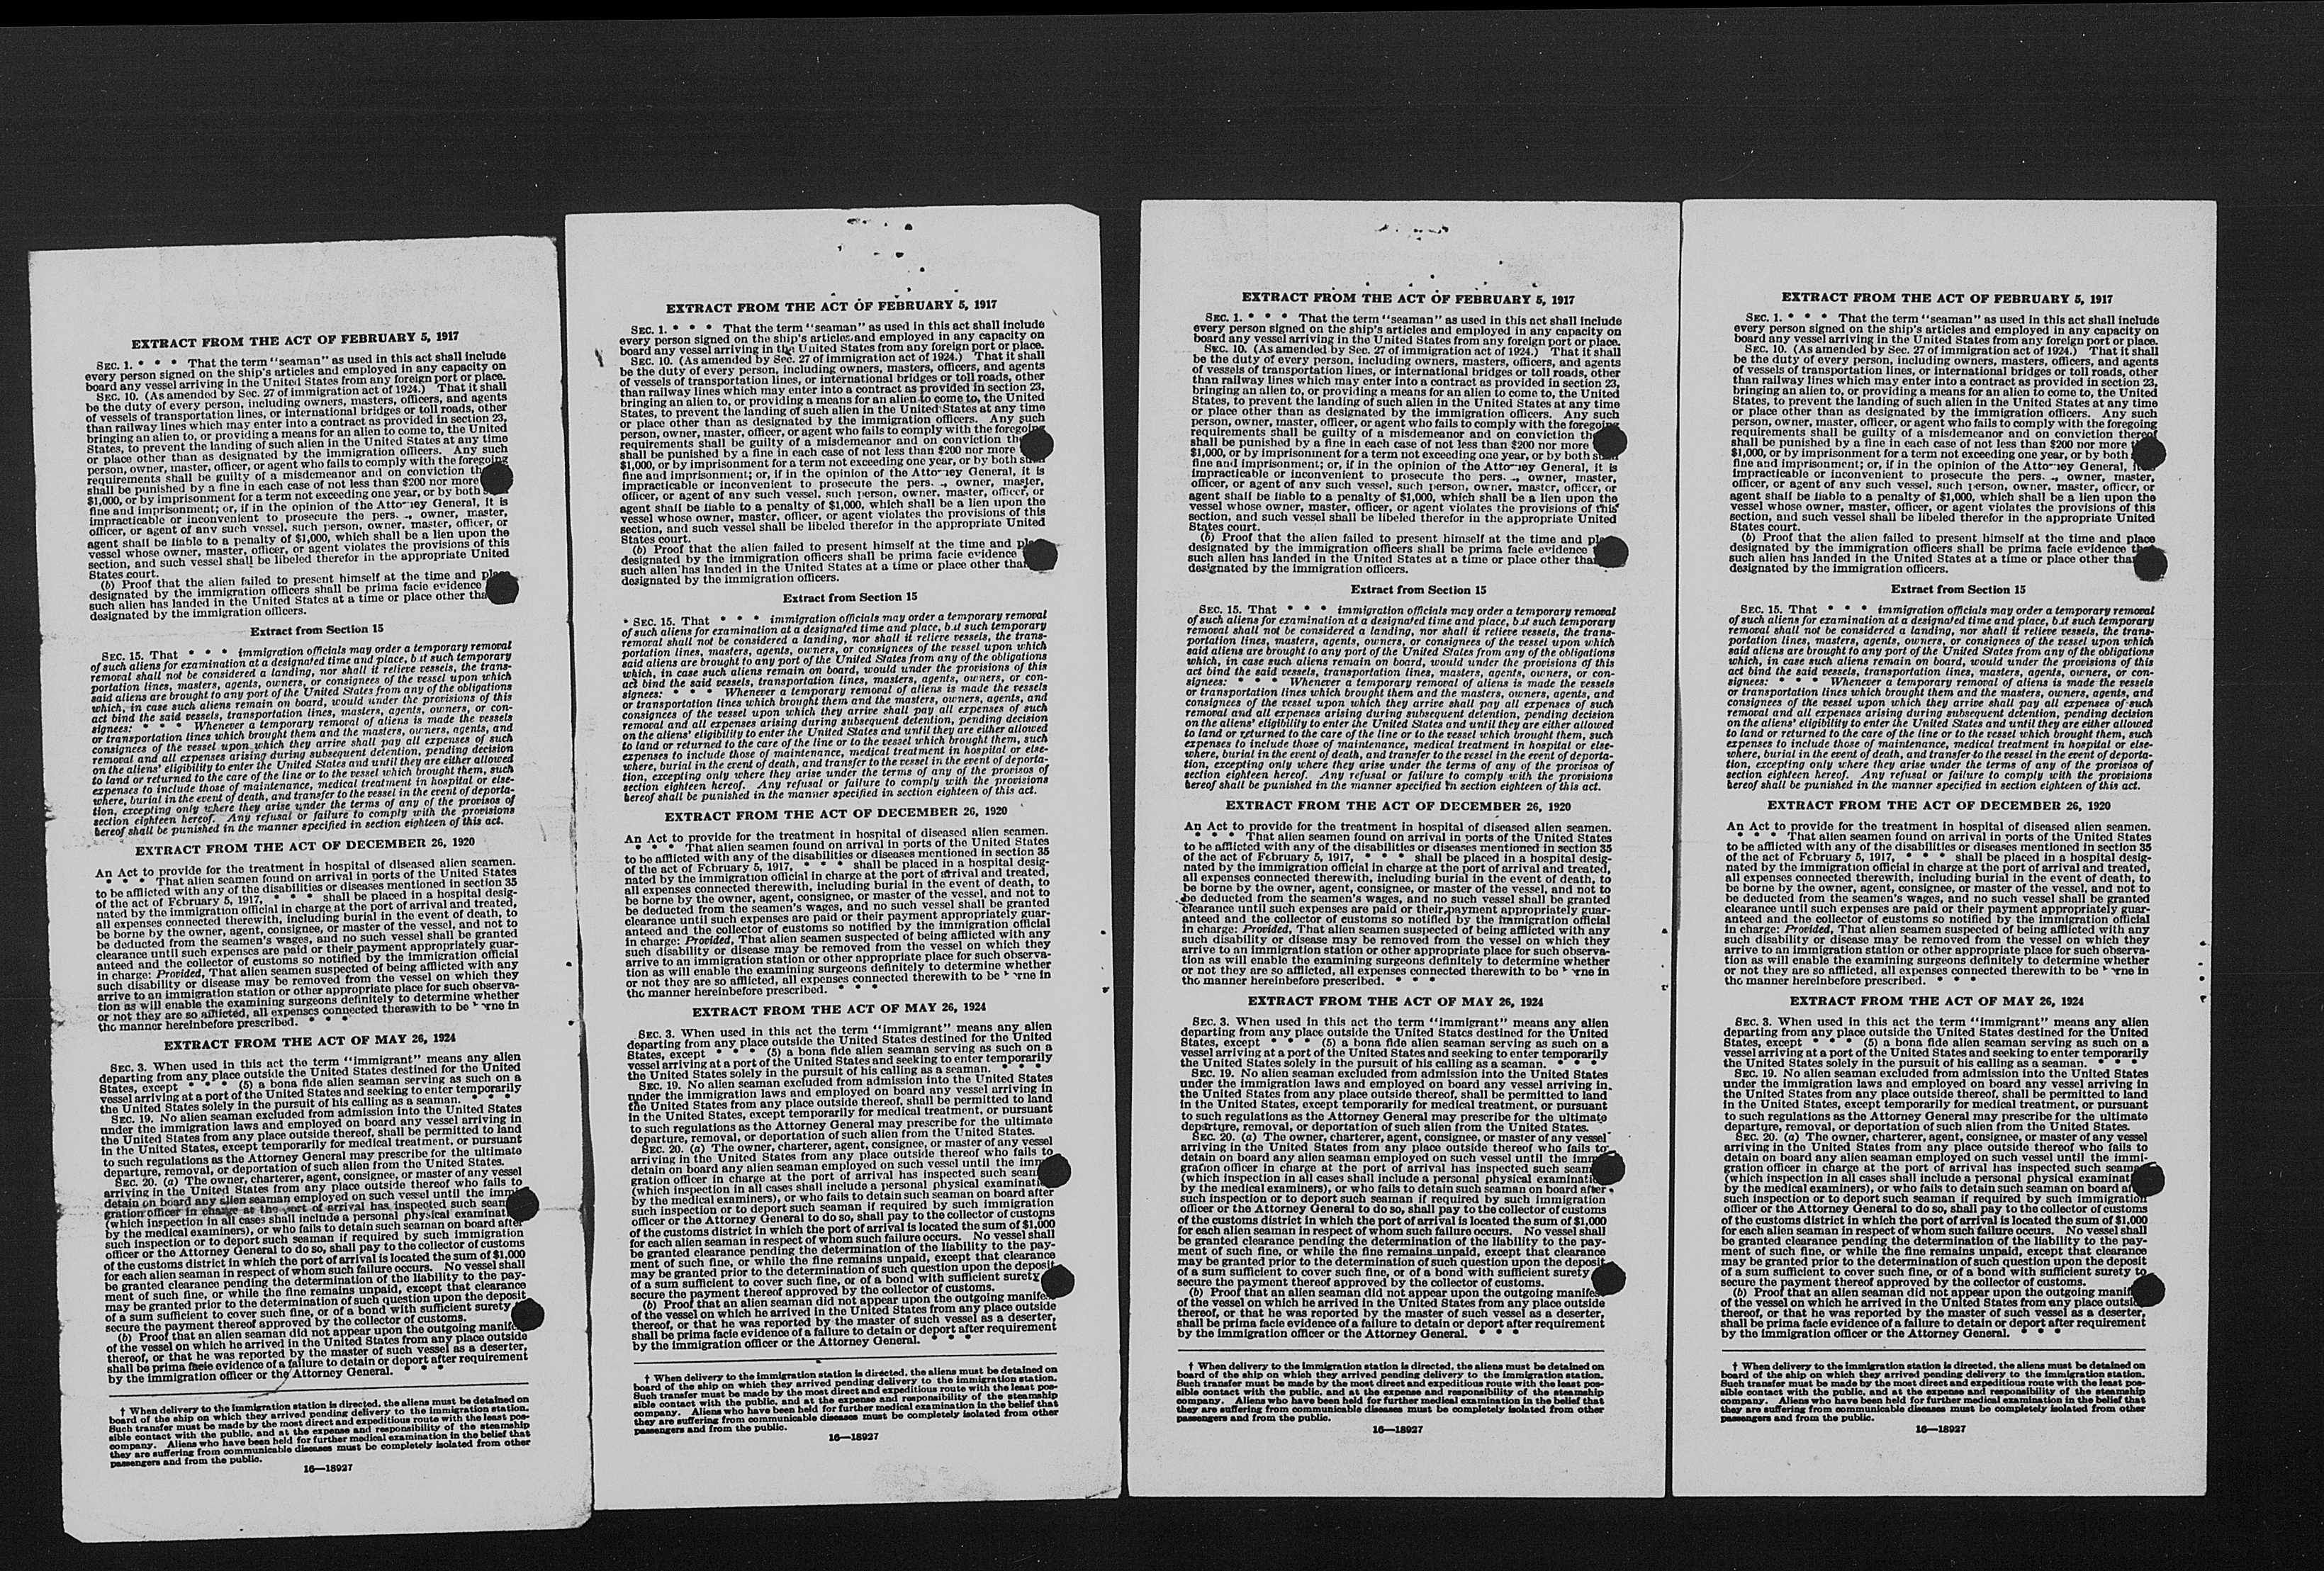 EXTRACT FROM THE ACT OF FEBRUARY 5, 1917
SEC. 1. * * * That the term "seaman" as used in this act shall include
every person signed on the ship's articles and employed in any capacity on
board any vessel arriving in the United States from any foreign port or place.
SEC. 10. (As amended by Sec. 27 of immigration act of 1924.) That it shall
be the duty of every person, including owners, masters, officers, and agents
of vessels of transportation lines, or international bridges or toll roads, other
than railway lines which may enter into a contract as provided in section 23,
bringing an alien to, or providing a means for an alien to come to, the United
States, to prevent the landing of such alien in the United States at any time
or place other than as designated by the immigration officers. Any such
person, owner, master, officer, or agent who fails to comply with the foregoing
requirements shall be guilty of a misdemeanor and on conviction
shall be punished by a fine in each case of not less than $200 nor more
$1,000, or by imprisonment for a term not exceeding one year, or by both
fine and imprisonment; or, if in the opinion of the Attorney General, it is
impracticable or inconvenient to prosecute the pers. , owner, master,
officer, or agent of any such vessel, such person, owner, master, officer, or
agent shall be liable to a penalty of $1,000, which shall be a lien upon the
vessel whose owner, master, officer, or agent violates the provisions of this
section, and such vessel shall be libeled therefor in the appropriate United
States court.
(b) Proof that the alien failed to present himself at the time and place
designated by the immigration officers shall be prima facie evidence
such alien has landed in the United States at a time or place other
designated by the immigration officers.
Extract from Section 15
SEC. 15. That * * * immigration officials may order a temporary removal
of such aliens for examination at a designated time and place, but such temporary
removal shall not be considered a landing, nor shall it relieve vessels, the trans-
portation lines, masters, agents, owners, or consignees of the vessel upon which
said aliens are brought to any port of the United States from any of the obligations
which, in case such aliens remain on board, would under the provisions of this
act bind the said vessels, transportation lines, masters, agents, owners, or con-
signees: * * * Whenever a temporary removal of aliens is made the vessels
or transportation lines which brought them and the masters, owners, agents, and
consignees of the vessel upon which they arrive shall pay all expenses of such
removal and all expenses arising during subsequent detention, pending decision
on the aliens' eligibility to enter the United States and until they are either allowed
to land or returned to the care of the line or to the vessel which brought them, such
expenses to include those of maintenance, medical treatment in hospital or else-
where, burial in the event of death, and transfer to the vessel in the event of deporta-
tion, excepting only where they arise under the terms of any of the provisos of
section eighteen hereof. Any refusal or failure to comply with the provisions
hereof shall be punished in the manner specified in section eighteen of this act.
EXTRACT FROM THE ACT OF DECEMBER 26, 1920
An Act to provide for the treatment in hospital of diseased alien seamen.
* * * That alien seamen found on arrival in ports of the United States
to be afflicted with any of the disabilities or diseases mentioned in section 35
of the act of February 5, 1917, * * * shall be placed in a hospital desig-
nated by the immigration official in charge at the port of arrival and treated,
all expenses connected therewith, including burial in the event of death, to
be borne by the owner, agent, consignee, or master of the vessel, and not to
be deducted from the seamen's wages, and no such vessel shall be granted
clearance until such expenses are paid or their payment appropriately guar-
anteed and the collector of customs so notified by the immigration official
in charge: Provided, That alien seamen suspected of being afflicted with any
such disability or disease may be removed from the vessel on which they
arrive to an immigration station or other appropriate place for such observa-
tion as will enable the examining surgeons definitely to determine whether
or not they are so afflicted, all expenses connected therewith to be borne in
the manner hereinbefore prescribed. * * *
EXTRACT FROM THE ACT OF MAY 26, 1924
SEC. 3. When used in this act the term "immigrant" means any alien
departing from any place outside the United States destined for the United
States, except * * * (5) a bona fide alien seaman serving as such on a
vessel arriving at a port of the United States and seeking to enter temporarily
the United States solely in the pursuit of his calling as a seaman. * * *
SEC. 19. No alien seaman excluded from admission into the United States
under the immigration laws and employed on board any vessel arriving in
the United States from any place outside thereof, shall be permitted to land
in the United States, except temporarily for medical treatment, or pursuant
to such regulations as the Attorney General may prescribe for the ultimate
departure, removal, or deportation of such alien from the United States.
SEC. 20. (a) The owner, charterer, agent, consignee, or master of any vessel
arriving in the United States from any place outside thereof who fails to
detain on board any alien seaman employed on such vessel until the
gration officer in charge at the port of arrival has inspected such
(which inspection in all cases shall include a personal physical
by the medical examiners), or who fails to detain such seaman on board after
such inspection or to deport such seaman if required by such immigration
officer or the Attorney General to do so, shall pay to the collector of customs
of the customs district in which the port of arrival is located the sum of $1,000
for each alien seaman in respect of whom such failure occurs. No vessel shall
be granted clearance pending the determination of the liability to the pay-
ment of such fine, or while the fine remains unpaid, except that clearance
may be granted prior to the determination of such question upon the deposit
of a sum sufficient to cover such fine, or of a bond with sufficient surety
secure the payment thereof approved by the collector of customs.
(b) Proof that an alien seaman did not appear upon the outgoing
of the vessel on which he arrived in the United States from any place outside
thereof, or that he was reported by the master of such vessel as a deserter,
shall be prima facie evidence of a failure to detain or deport after requirement
by the immigration officer or the Attorney General. * * *
† When delivery to the immigration station is directed, the aliens must be detained on
board of the ship on which they arrived pending delivery to the immigration station.
Such transfer must be made by the most direct and expeditious route with the least pos-
sible contact with the public, and at the expense and responsibility of the steamship
company. Aliens who have been held for further medical examination in the belief that
they are suffering from communicable diseases must be completely isolated from other
passengers and from the public.
16—18927
EXTRACT FROM THE ACT OF FEBRUARY 5, 1917
SEC. 1. * * * That the term "seaman" as used in this act shall include
every person signed on the ship's articles and employed in any capacity on
board any vessel arriving in the United States from any foreign port or place.
SEC. 10. (As amended by Sec. 27 of immigration act of 1924.) That it shall
be the duty of every person, including owners, masters, officers, and agents
of vessels of transportation lines, or international bridges or toll roads, other
than railway lines which may enter into a contract as provided in section 23,
bringing an alien to, or providing a means for an alien to come to, the United
States, to prevent the landing of such alien in the United States at any time
or place other than as designated by the immigration officers. Any such
person, owner, master, officer, or agent who fails to comply with the foregoing
requirements shall be guilty of a misdemeanor and on conviction
shall be punished by a fine in each case of not less than $200 nor more
$1,000, or by imprisonment for a term not exceeding one year, or by both such
fine and imprisonment; or, if in the opinion of the Attorney General, it is
impracticable or inconvenient to prosecute the pers. , owner, master,
officer, or agent of any such vessel, such person, owner, master, officer, or
agent shall be liable to a penalty of $1,000, which shall be a lien upon the
vessel whose owner, master, officer, or agent violates the provisions of this
section, and such vessel shall be libeled therefor in the appropriate United
States court.
(b) Proof that the alien failed to present himself at the time and place
designated by the immigration officers shall be prima facie evidence
such alien has landed in the United States at a time or place other than
designated by the immigration officers.
Extract from Section 15
SEC. 15. That * * * immigration officials may order a temporary removal
of such aliens for examination at a designated time and place, but such temporary
removal shall not be considered a landing, nor shall it relieve vessels, the trans-
portation lines, masters, agents, owners, or consignees of the vessel upon which
said aliens are brought to any port of the United States from any of the obligations
which, in case such aliens remain on board, would under the provisions of this
act bind the said vessels, transportation lines, masters, agents, owners, or con-
signees: * * * Whenever a temporary removal of aliens is made the vessels
or transportation lines which brought them and the masters, owners, agents, and
consignees of the vessel upon which they arrive shall pay all expenses of such
removal and all expenses arising during subsequent detention, pending decision
on the aliens' eligibility to enter the United States and until they are either allowed
to land or returned to the care of the line or to the vessel which brought them, such
expenses to include those of maintenance, medical treatment in hospital or else-
where, burial in the event of death, and transfer to the vessel in the event of deporta-
tion, excepting only where they arise under the terms of any of the provisos of
section eighteen hereof. Any refusal or failure to comply with the provisions
hereof shall be punished in the manner specified in section eighteen of this act.
EXTRACT FROM THE ACT OF DECEMBER 26, 1920
An Act to provide for the treatment in hospital of diseased alien seamen.
* * * That alien seamen found on arrival in ports of the United States
to be afflicted with any of the disabilities or diseases mentioned in section 35
of the act of February 5, 1917, * * * shall be placed in a hospital desig-
nated by the immigration official in charge at the port of arrival and treated,
all expenses connected therewith, including burial in the event of death, to
be borne by the owner, agent, consignee, or master of the vessel, and not to
be deducted from the seamen's wages, and no such vessel shall be granted
clearance until such expenses are paid or their payment appropriately guar-
anteed and the collector of customs so notified by the immigration official
in charge: Provided, That alien seamen suspected of being afflicted with any
such disability or disease may be removed from the vessel on which they
arrive to an immigration station or other appropriate place for such observa-
tion as will enable the examining surgeons definitely to determine whether
or not they are so afflicted, all expenses connected therewith to be borne in
the manner hereinbefore prescribed. * * *
EXTRACT FROM THE ACT OF MAY 26, 1924
SEC. 3. When used in this act the term "immigrant" means any alien
departing from any place outside the United States destined for the United
States, except * * * (5) a bona fide alien seaman serving as such on a
vessel arriving at a port of the United States and seeking to enter temporarily
the United States solely in the pursuit of his calling as a seaman. * * *
SEC. 19. No alien seaman excluded from admission into the United States
under the immigration laws and employed on board any vessel arriving in
the United States from any place outside thereof, shall be permitted to land
in the United States, except temporarily for medical treatment, or pursuant
to such regulations as the Attorney General may prescribe for the ultimate
departure, removal, or deportation of such alien from the United States.
SEC. 20. (a) The owner, charterer, agent, consignee, or master of any vessel
arriving in the United States from any place outside thereof who fails to
detain on board any alien seaman employed on such vessel until the
gration officer in charge at the port of arrival has inspected such
(which inspection in all cases shall include a personal physical
by the medical examiners), or who fails to detain such seaman on board after
such inspection or to deport such seaman if required by such immigration
officer or the Attorney General to do so, shall pay to the collector of customs
of the customs district in which the port of arrival is located the sum of $1,000
for each alien seaman in respect of whom such failure occurs. No vessel shall
be granted clearance pending the determination of the liability to the pay-
ment of such fine, or while the fine remains unpaid, except that clearance
may be granted prior to the determination of such question upon the deposit
of a sum sufficient to cover such fine, or of a bond with sufficient surety
secure the payment thereof approved by the collector of customs.
(b) Proof that an alien seaman did not appear upon the outgoing
of the vessel on which he arrived in the United States from any place outside
thereof, or that he was reported by the master of such vessel as a deserter,
shall be prima facie evidence of a failure to detain or deport after requirement
by the immigration officer or the Attorney General. * * *
† When delivery to the immigration station is directed, the aliens must be detained on
board of the ship on which they arrived pending delivery to the immigration station.
Such transfer must be made by the most direct and expeditious route with the least pos-
sible contact with the public, and at the expense and responsibility of the steamship
company. Aliens who have been held for further medical examination in the belief that
they are suffering from communicable diseases must be completely isolated from other
passengers and from the public.
16—18927
EXTRACT FROM THE ACT OF FEBRUARY 5, 1917
SEC. 1. * * * That the term "seaman" as used in this act shall include
every person signed on the ship's articles and employed in any capacity on
board any vessel arriving in the United States from any foreign port or place.
SEC. 10. (As amended by Sec. 27 of immigration act of 1924.) That it shall
be the duty of every person, including owners, masters, officers, and agents
of vessels of transportation lines, or international bridges or toll roads, other
than railway lines which may enter into a contract as provided in section 23,
bringing an alien to, or providing a means for an alien to come to, the United
States, to prevent the landing of such alien in the United States at any time
or place other than as designated by the immigration officers. Any such
person, owner, master, officer, or agent who fails to comply with the foregoing
requirements shall be guilty of a misdemeanor and on conviction
shall be punished by a fine in each case of not less than $200 nor more
$1,000, or by imprisonment for a term not exceeding one year, or by both such
fine and imprisonment; or, if in the opinion of the Attorney General, it is
impracticable or inconvenient to prosecute the pers. , owner, master,
officer, or agent of any such vessel, such person, owner, master, officer, or
agent shall be liable to a penalty of $1,000, which shall be a lien upon the
vessel whose owner, master, officer, or agent violates the provisions of this
section, and such vessel shall be libeled therefor in the appropriate United
States court.
(b) Proof that the alien failed to present himself at the time and place
designated by the immigration officers shall be prima facie evidence
such alien has landed in the United States at a time or place other than
designated by the immigration officers.
Extract from Section 15
SEC. 15. That * * * immigration officials may order a temporary removal
of such aliens for examination at a designated time and place, but such temporary
removal shall not be considered a landing, nor shall it relieve vessels, the trans-
portation lines, masters, agents, owners, or consignees of the vessel upon which
said aliens are brought to any port of the United States from any of the obligations
which, in case such aliens remain on board, would under the provisions of this
act bind the said vessels, transportation lines, masters, agents, owners, or con-
signees: * * * Whenever a temporary removal of aliens is made the vessels
or transportation lines which brought them and the masters, owners, agents, and
consignees of the vessel upon which they arrive shall pay all expenses of such
removal and all expenses arising during subsequent detention, pending decision
on the aliens' eligibility to enter the United States and until they are either allowed
to land or returned to the care of the line or to the vessel which brought them, such
expenses to include those of maintenance, medical treatment in hospital or else-
where, burial in the event of death, and transfer to the vessel in the event of deporta-
tion, excepting only where they arise under the terms of any of the provisos of
section eighteen hereof. Any refusal or failure to comply with the provisions
hereof shall be punished in the manner specified in section eighteen of this act.
EXTRACT FROM THE ACT OF DECEMBER 26, 1920
An Act to provide for the treatment in hospital of diseased alien seamen.
* * * That alien seamen found on arrival in ports of the United States
to be afflicted with any of the disabilities or diseases mentioned in section 35
of the act of February 5, 1917, * * * shall be placed in a hospital desig-
nated by the immigration official in charge at the port of arrival and treated,
all expenses connected therewith, including burial in the event of death, to
be borne by the owner, agent, consignee, or master of the vessel, and not to
be deducted from the seamen's wages, and no such vessel shall be granted
clearance until such expenses are paid or their payment appropriately guar-
anteed and the collector of customs so notified by the immigration official
in charge: Provided, That alien seamen suspected of being afflicted with any
such disability or disease may be removed from the vessel on which they
arrive to an immigration station or other appropriate place for such observa-
tion as will enable the examining surgeons definitely to determine whether
or not they are so afflicted, all expenses connected therewith to be borne in
the manner hereinbefore prescribed. * * *
EXTRACT FROM THE ACT OF MAY 26, 1924
SEC. 3. When used in this act the term "immigrant" means any alien
departing from any place outside the United States destined for the United
States, except * * * (5) a bona fide alien seaman serving as such on a
vessel arriving at a port of the United States and seeking to enter temporarily
the United States solely in the pursuit of his calling as a seaman. * * *
SEC. 19. No alien seaman excluded from admission into the United States
under the immigration laws and employed on board any vessel arriving in
the United States from any place outside thereof, shall be permitted to land
in the United States, except temporarily for medical treatment, or pursuant
to such regulations as the Attorney General may prescribe for the ultimate
departure, removal, or deportation of such alien from the United States.
SEC. 20. (a) The owner, charterer, agent, consignee, or master of any vessel
arriving in the United States from any place outside thereof who fails to
detain on board any alien seaman employed on such vessel until the
gration officer in charge at the port of arrival has inspected such
(which inspection in all cases shall include a personal physical
by the medical examiners), or who fails to detain such seaman on board after
such inspection or to deport such seaman if required by such immigration
officer or the Attorney General to do so, shall pay to the collector of customs
of the customs district in which the port of arrival is located the sum of $1,000
for each alien seaman in respect of whom such failure occurs. No vessel shall
be granted clearance pending the determination of the liability to the pay-
ment of such fine, or while the fine remains unpaid, except that clearance
may be granted prior to the determination of such question upon the deposit
of a sum sufficient to cover such fine, or of a bond with sufficient surety
secure the payment thereof approved by the collector of customs.
(b) Proof that an alien seaman did not appear upon the outgoing
of the vessel on which he arrived in the United States from any place outside
thereof, or that he was reported by the master of such vessel as a deserter,
shall be prima facie evidence of a failure to detain or deport after requirement
by the immigration officer or the Attorney General. * * *
† When delivery to the immigration station is directed, the aliens must be detained on
board of the ship on which they arrived pending delivery to the immigration station.
Such transfer must be made by the most direct and expeditious route with the least pos-
sible contact with the public, and at the expense and responsibility of the steamship
company. Aliens who have been held for further medical examination in the belief that
they are suffering from communicable diseases must be completely isolated from other
passengers and from the public.
16—18927
EXTRACT FROM THE ACT OF FEBRUARY 5, 1917
SEC. 1. * * * That the term "seaman" as used in this act shall include
every person signed on the ship's articles and employed in any capacity on
board any vessel arriving in the United States from any foreign port or place.
SEC. 10. (As amended by Sec. 27 of immigration act of 1924.) That it shall
be the duty of every person, including owners, masters, officers, and agents
of vessels of transportation lines, or international bridges or toll roads, other
than railway lines which may enter into a contract as provided in section 23,
bringing an alien to, or providing a means for an alien to come to, the United
States, to prevent the landing of such alien in the United States at any time
or place other than as designated by the immigration officers. Any such
person, owner, master, officer, or agent who fails to comply with the foregoing
requirements shall be guilty of a misdemeanor and on conviction thereof
shall be punished by a fine in each case of not less than $200 nor more
$1,000, or by imprisonment for a term not exceeding one year, or by both
fine and imprisonment; or, if in the opinion of the Attorney General, it is
impracticable or inconvenient to prosecute the pers. , owner, master,
officer, or agent of any such vessel, such person, owner, master, officer, or
agent shall be liable to a penalty of $1,000, which shall be a lien upon the
vessel whose owner, master, officer, or agent violates the provisions of this
section, and such vessel shall be libeled therefor in the appropriate United
States court.
(b) Proof that the alien failed to present himself at the time and place
designated by the immigration officers shall be prima facie evidence that
such alien has landed in the United States at a time or place other than
designated by the immigration officers.
Extract from Section 15
SEC. 15. That * * * immigration officials may order a temporary removal
of such aliens for examination at a designated time and place, but such temporary
removal shall not be considered a landing, nor shall it relieve vessels, the trans-
portation lines, masters, agents, owners, or consignees of the vessel upon which
said aliens are brought to any port of the United States from any of the obligations
which, in case such aliens remain on board, would under the provisions of this
act bind the said vessels, transportation lines, masters, agents, owners, or con-
signees: * * * Whenever a temporary removal of aliens is made the vessels
or transportation lines which brought them and the masters, owners, agents, and
consignees of the vessel upon which they arrive shall pay all expenses of such
removal and all expenses arising during subsequent detention, pending decision
on the aliens' eligibility to enter the United States and until they are either allowed
to land or returned to the care of the line or to the vessel which brought them, such
expenses to include those of maintenance, medical treatment in hospital or else-
where, burial in the event of death, and transfer to the vessel in the event of deporta-
tion, excepting only where they arise under the terms of any of the provisos of
section eighteen hereof. Any refusal or failure to comply with the provisions
hereof shall be punished in the manner specified in section eighteen of this act.
EXTRACT FROM THE ACT OF DECEMBER 26, 1920
An Act to provide for the treatment in hospital of diseased alien seamen.
* * * That alien seamen found on arrival in ports of the United States
to be afflicted with any of the disabilities or diseases mentioned in section 35
of the act of February 5, 1917, * * * shall be placed in a hospital desig-
nated by the immigration official in charge at the port of arrival and treated,
all expenses connected therewith, including burial in the event of death, to
be borne by the owner, agent, consignee, or master of the vessel, and not to
be deducted from the seamen's wages, and no such vessel shall be granted
clearance until such expenses are paid or their payment appropriately guar-
anteed and the collector of customs so notified by the immigration official
in charge: Provided, That alien seamen suspected of being afflicted with any
such disability or disease may be removed from the vessel on which they
arrive to an immigration station or other appropriate place for such observa-
tion as will enable the examining surgeons definitely to determine whether
or not they are so afflicted, all expenses connected therewith to be borne in
the manner hereinbefore prescribed. * * *
EXTRACT FROM THE ACT OF MAY 26, 1924
SEC. 3. When used in this act the term "immigrant" means any alien
departing from any place outside the United States destined for the United
States, except * * * (5) a bona fide alien seaman serving as such on a
vessel arriving at a port of the United States and seeking to enter temporarily
the United States solely in the pursuit of his calling as a seaman. * * *
SEC. 19. No alien seaman excluded from admission into the United States
under the immigration laws and employed on board any vessel arriving in
the United States from any place outside thereof, shall be permitted to land
in the United States, except temporarily for medical treatment, or pursuant
to such regulations as the Attorney General may prescribe for the ultimate
departure, removal, or deportation of such alien from the United States.
SEC. 20. (a) The owner, charterer, agent, consignee, or master of any vessel
arriving in the United States from any place outside thereof who fails to
detain on board any alien seaman employed on such vessel until the immi-
gration officer in charge at the port of arrival has inspected such seaman
(which inspection in all cases shall include a personal physical
by the medical examiners), or who fails to detain such seaman on board
such inspection or to deport such seaman if required by such immigration
officer or the Attorney General to do so, shall pay to the collector of customs
of the customs district in which the port of arrival is located the sum of $1,000
for each alien seaman in respect of whom such failure occurs. No vessel shall
be granted clearance pending the determination of the liability to the pay-
ment of such fine, or while the fine remains unpaid, except that clearance
may be granted prior to the determination of such question upon the deposit
of a sum sufficient to cover such fine, or of a bond with sufficient surety to
secure the payment thereof approved by the collector of customs.
(b) Proof that an alien seaman did not appear upon the outgoing
of the vessel on which he arrived in the United States from any place outside
thereof, or that he was reported by the master of such vessel as a deserter,
shall be prima facie evidence of a failure to detain or deport after requirement
by the immigration officer or the Attorney General. * * *
† When delivery to the immigration station is directed, the aliens must be detained on
board of the ship on which they arrived pending delivery to the immigration station.
Such transfer must be made by the most direct and expeditious route with the least pos-
sible contact with the public, and at the expense and responsibility of the steamship
company. Aliens who have been held for further medical examination in the belief that
they are suffering from communicable diseases must be completely isolated from other
passengers and from the public.
16—18927